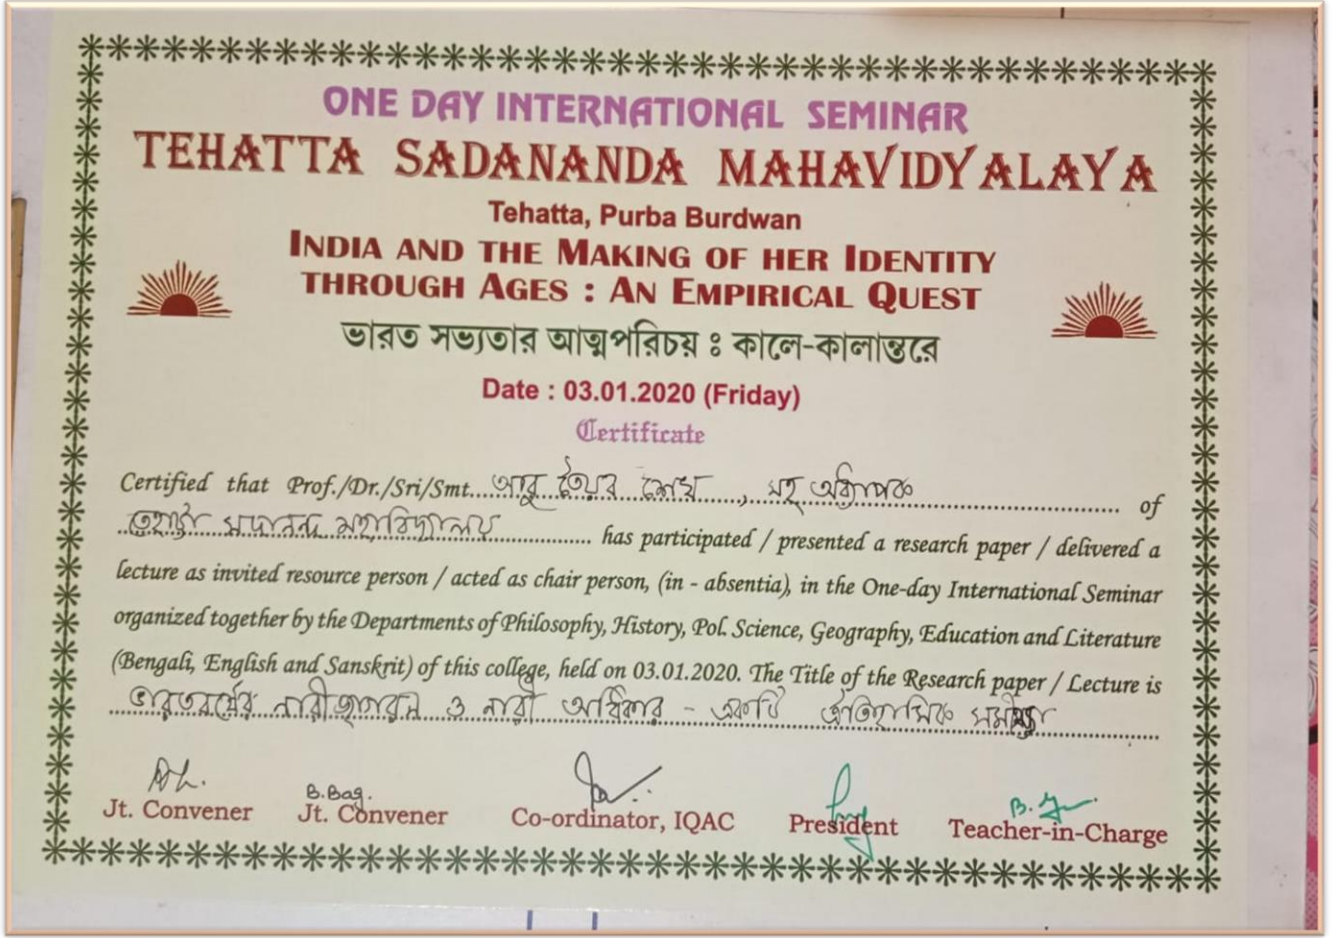 ONE DAY INTERNATIONAL SEMINAR
TEHATTA SADANANDA MAHAVIDYALAYA
Tehatta, Purba Burdwan
INDIA AND THE MAKING OF HER IDENTITY
THROUGH AGES : AN EMPIRICAL QUEST
ভারত সভ্যতার আত্মপরিচয় ঃ কালে-কালান্তরে
Date : 03.01.2020 (Friday)
Certificate
Certified that Prof./Dr./Sri/Smt. আবু তৈয়ব শেখ, সহ অধ্যাপক of
তেহাট্টা সদানন্দ মহাবিদ্যালয় has participated / presented a research paper / delivered a
lecture as invited resource person / acted as chair person, (in - absentia), in the One-day International Seminar
organized together by the Departments of Philosophy, History, Pol. Science, Geography, Education and Literature
(Bengali, English and Sanskrit) of this college, held on 03.01.2020. The Title of the Research paper / Lecture is
ভারতবর্ষের নারীজাগরণ ও নারী অধিকার - একটি ঐতিহাসিক সমীক্ষা
B.Bag.
Jt. Convener Jt. Convener Co-ordinator, IQAC President Teacher-in-Charge